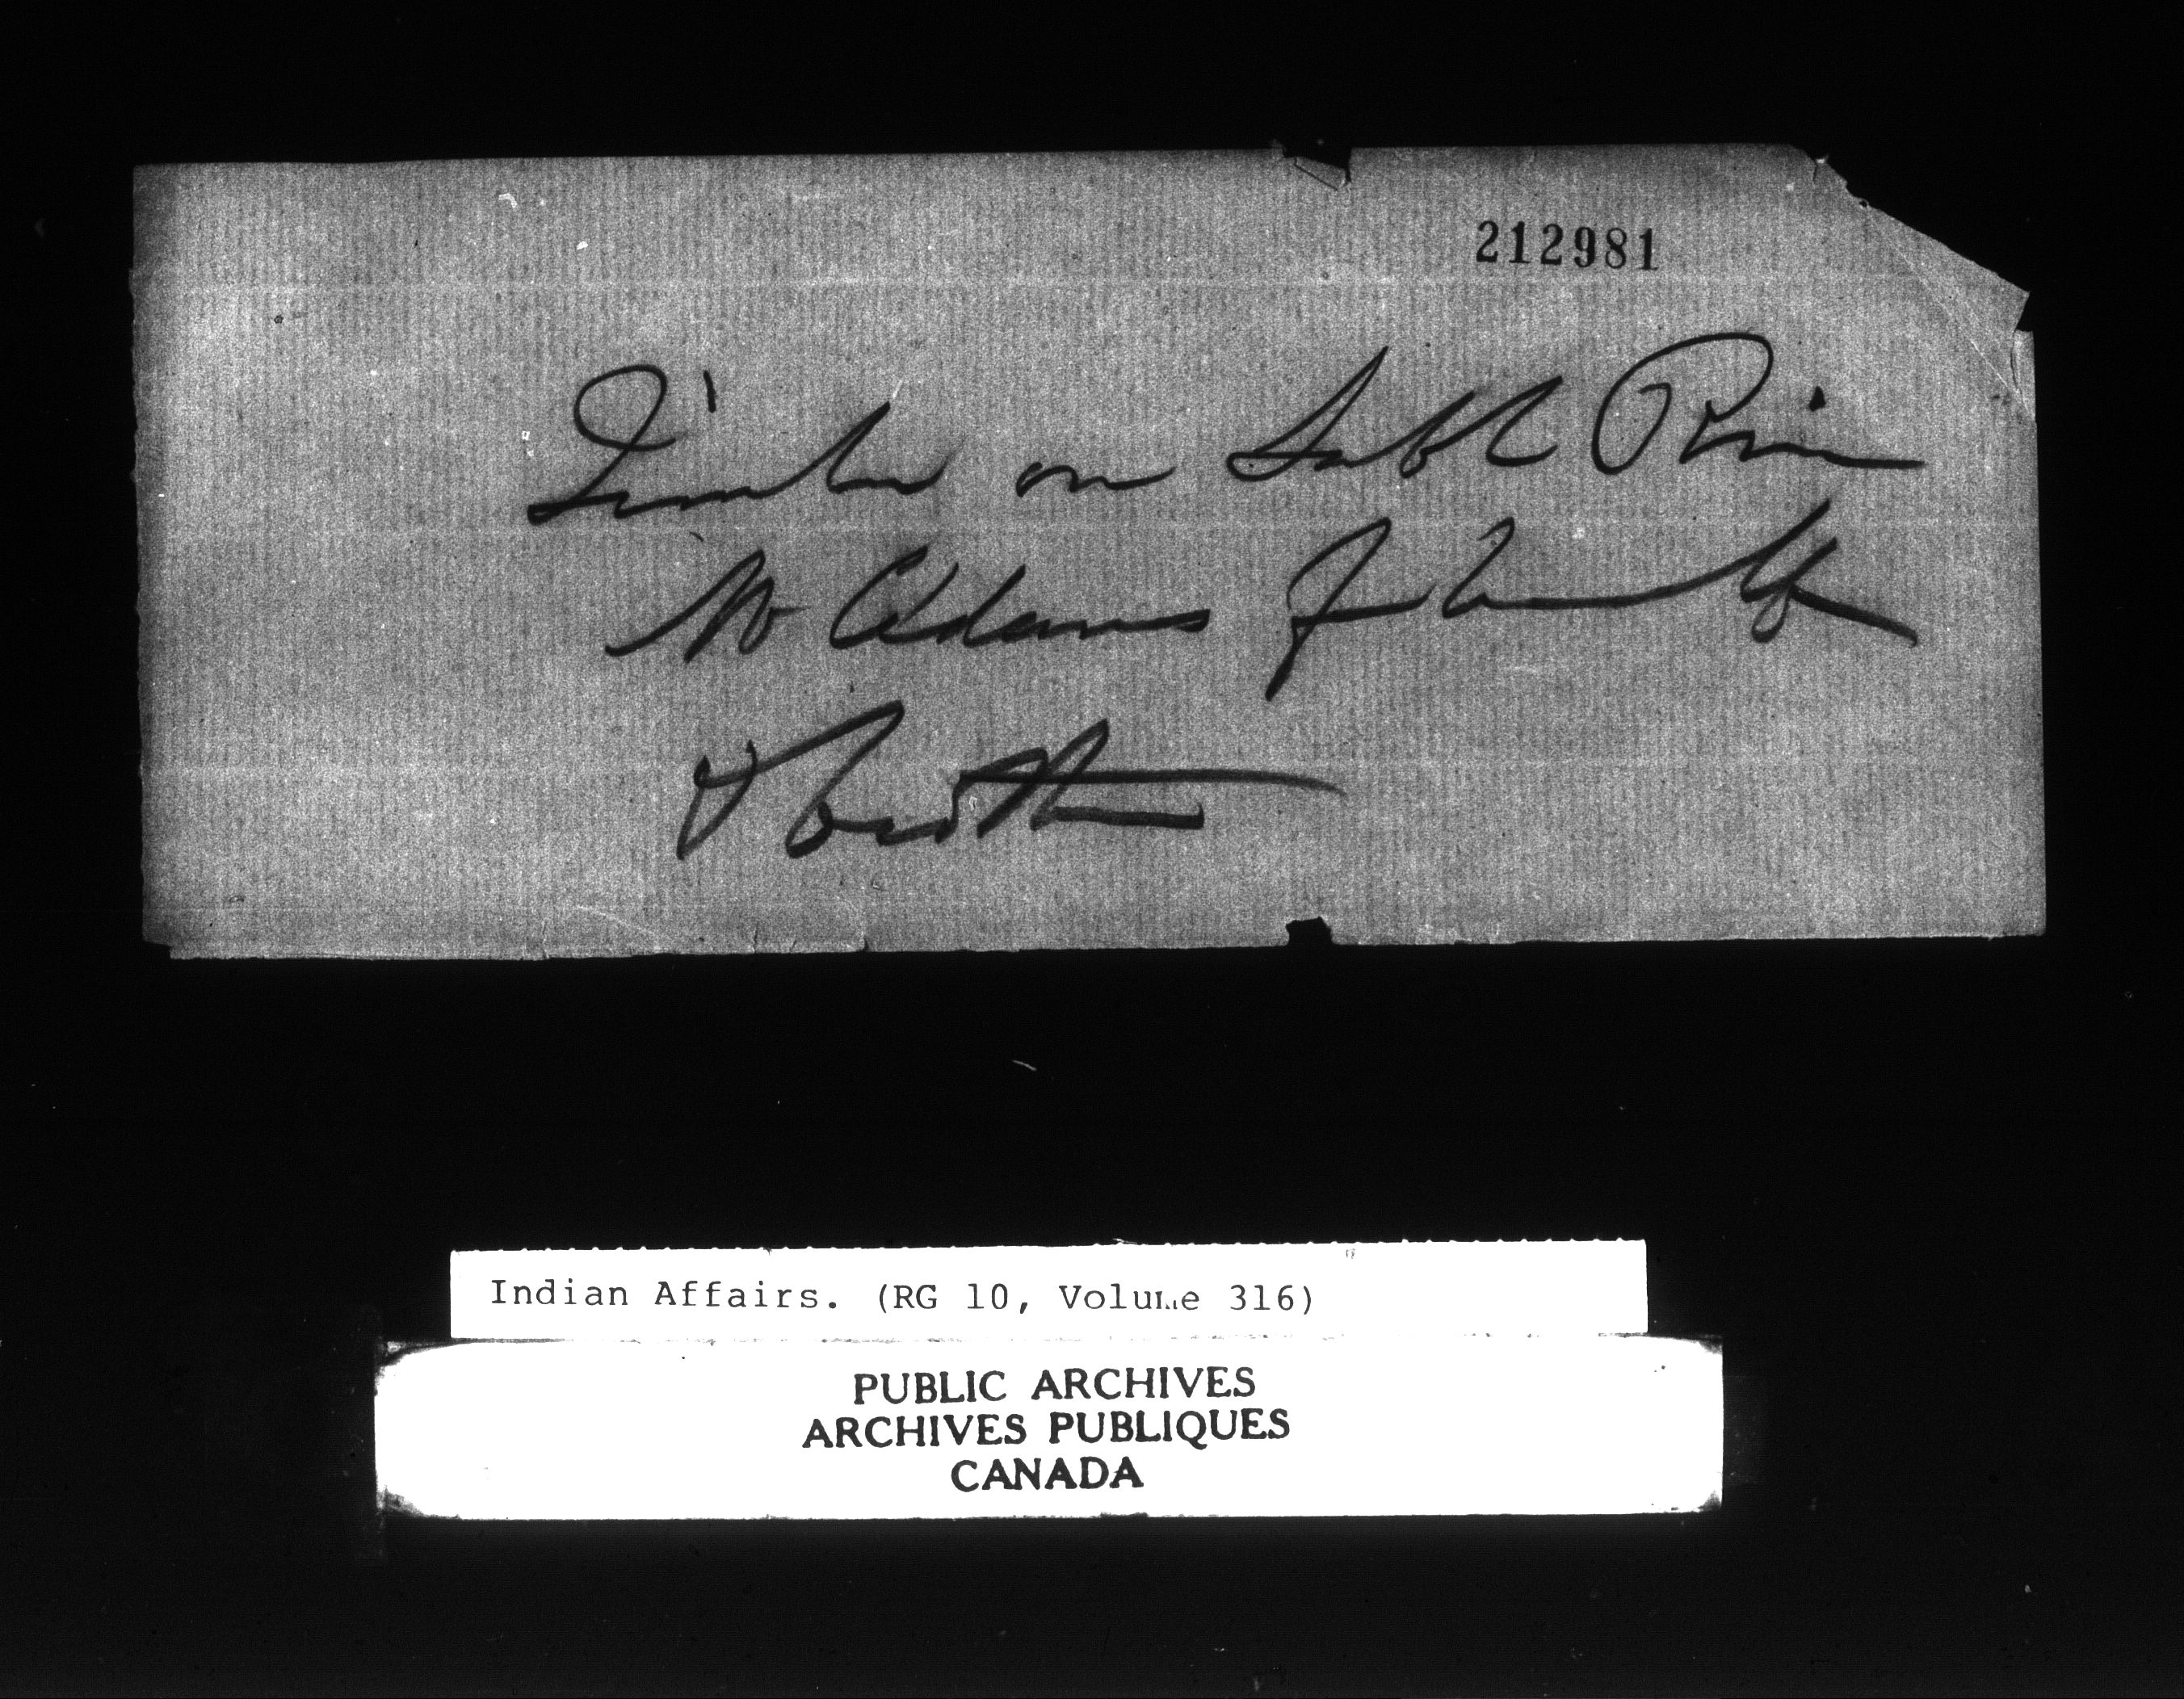 212981
Timber on Sable River
W Adams
& brother
Indian Affairs. (RG 10, Volume 316)
PUBLIC ARCHIVES
ARCHIVES PUBLIQUES
CANADA